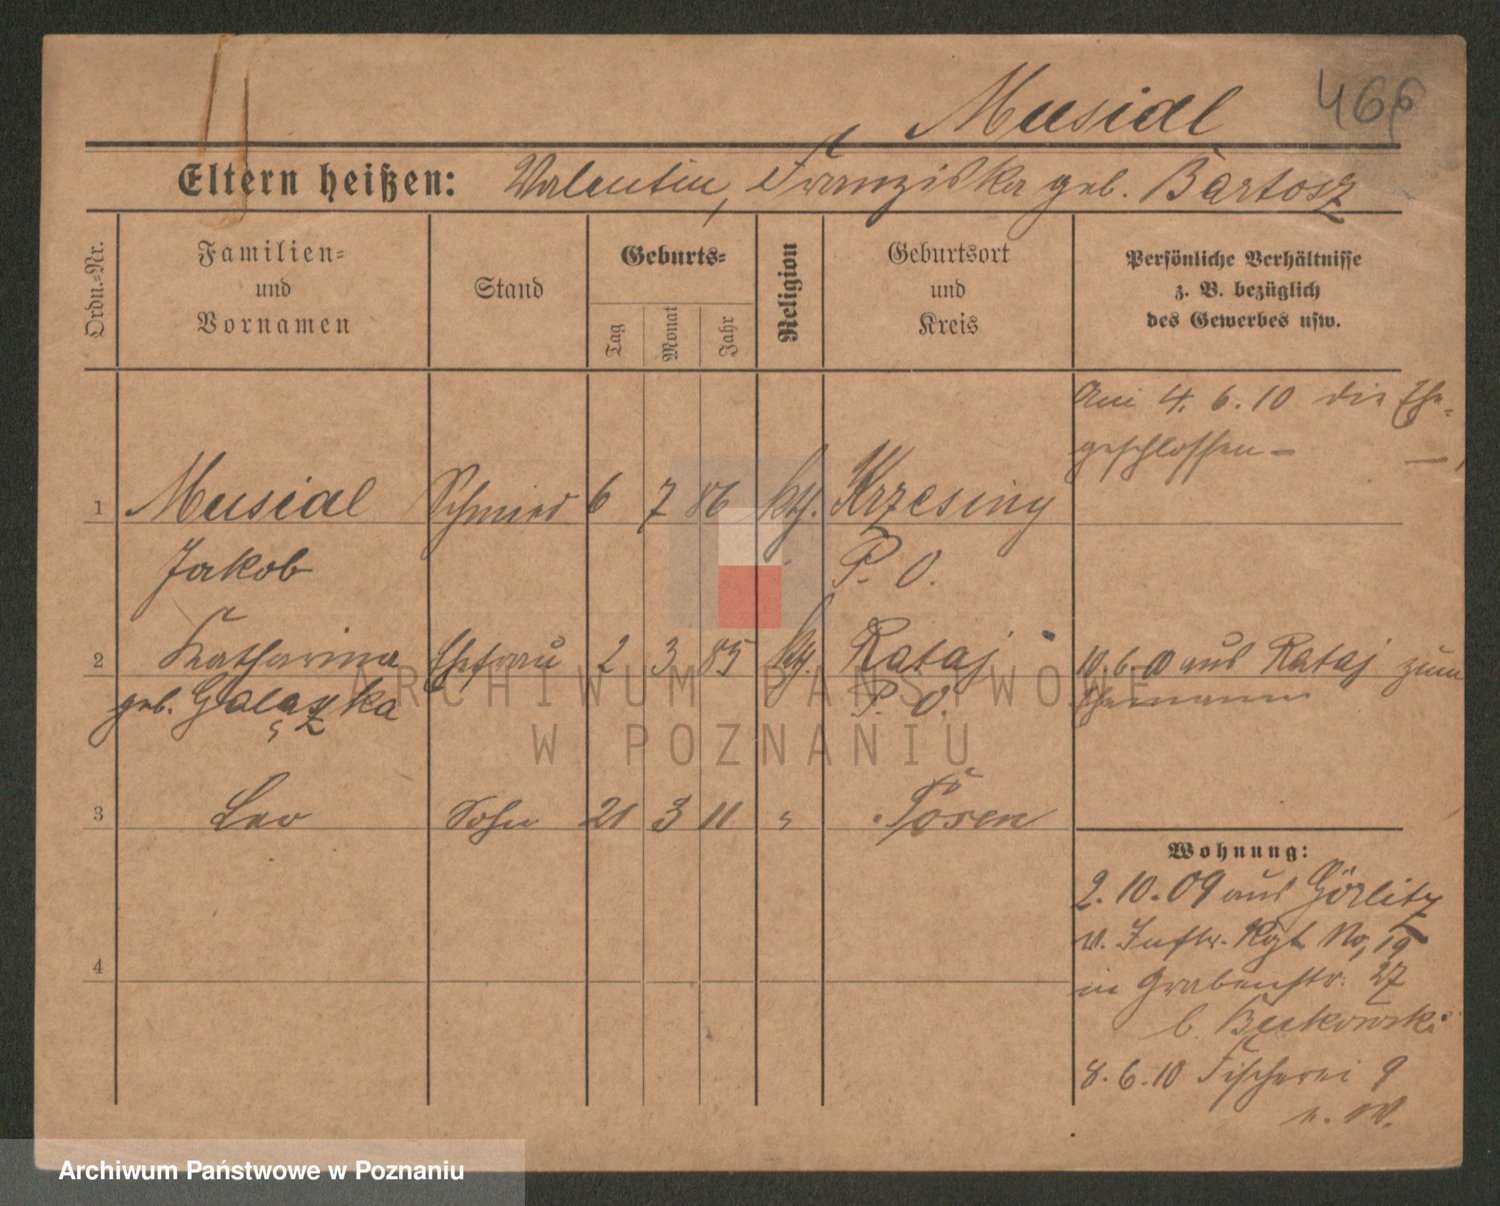 466
Musial
Eltern heißen: Valentin, Franziska geb. Bartosz
Ordn.-Nr.
Familien-
und
Vornamen
Stand
Geburts-
Tag
Monat
Jahr
Religion
Geburtsort
und
Kreis
Persönliche Verhältnisse
z. B. bezüglich
des Gewerbes usw.
Am 4. 6. 10 die Ehe-
geschlossen –
1 Musial Schmied 6 7 86 kth. Krzesiny
Jakob P. O.
2 Katharina Ehefrau 2 3 85 kth. Rataj 10. 6. 10 aus Rataj zum
geb. Galązka P. O. Ehemann
3 Leo Sohn 21 3 11 " Posen
4
Wohnung:
2. 10. 09 aus Görlitz
v. Inftr. Rgt No, 19
in Grabenstr. 27
b. Butkowski
8. 6. 10 Fischerei 9
n. W.
ARCHIWUM PAŃSTWOWE
W POZNANIU
Archiwum Państwowe w Poznaniu